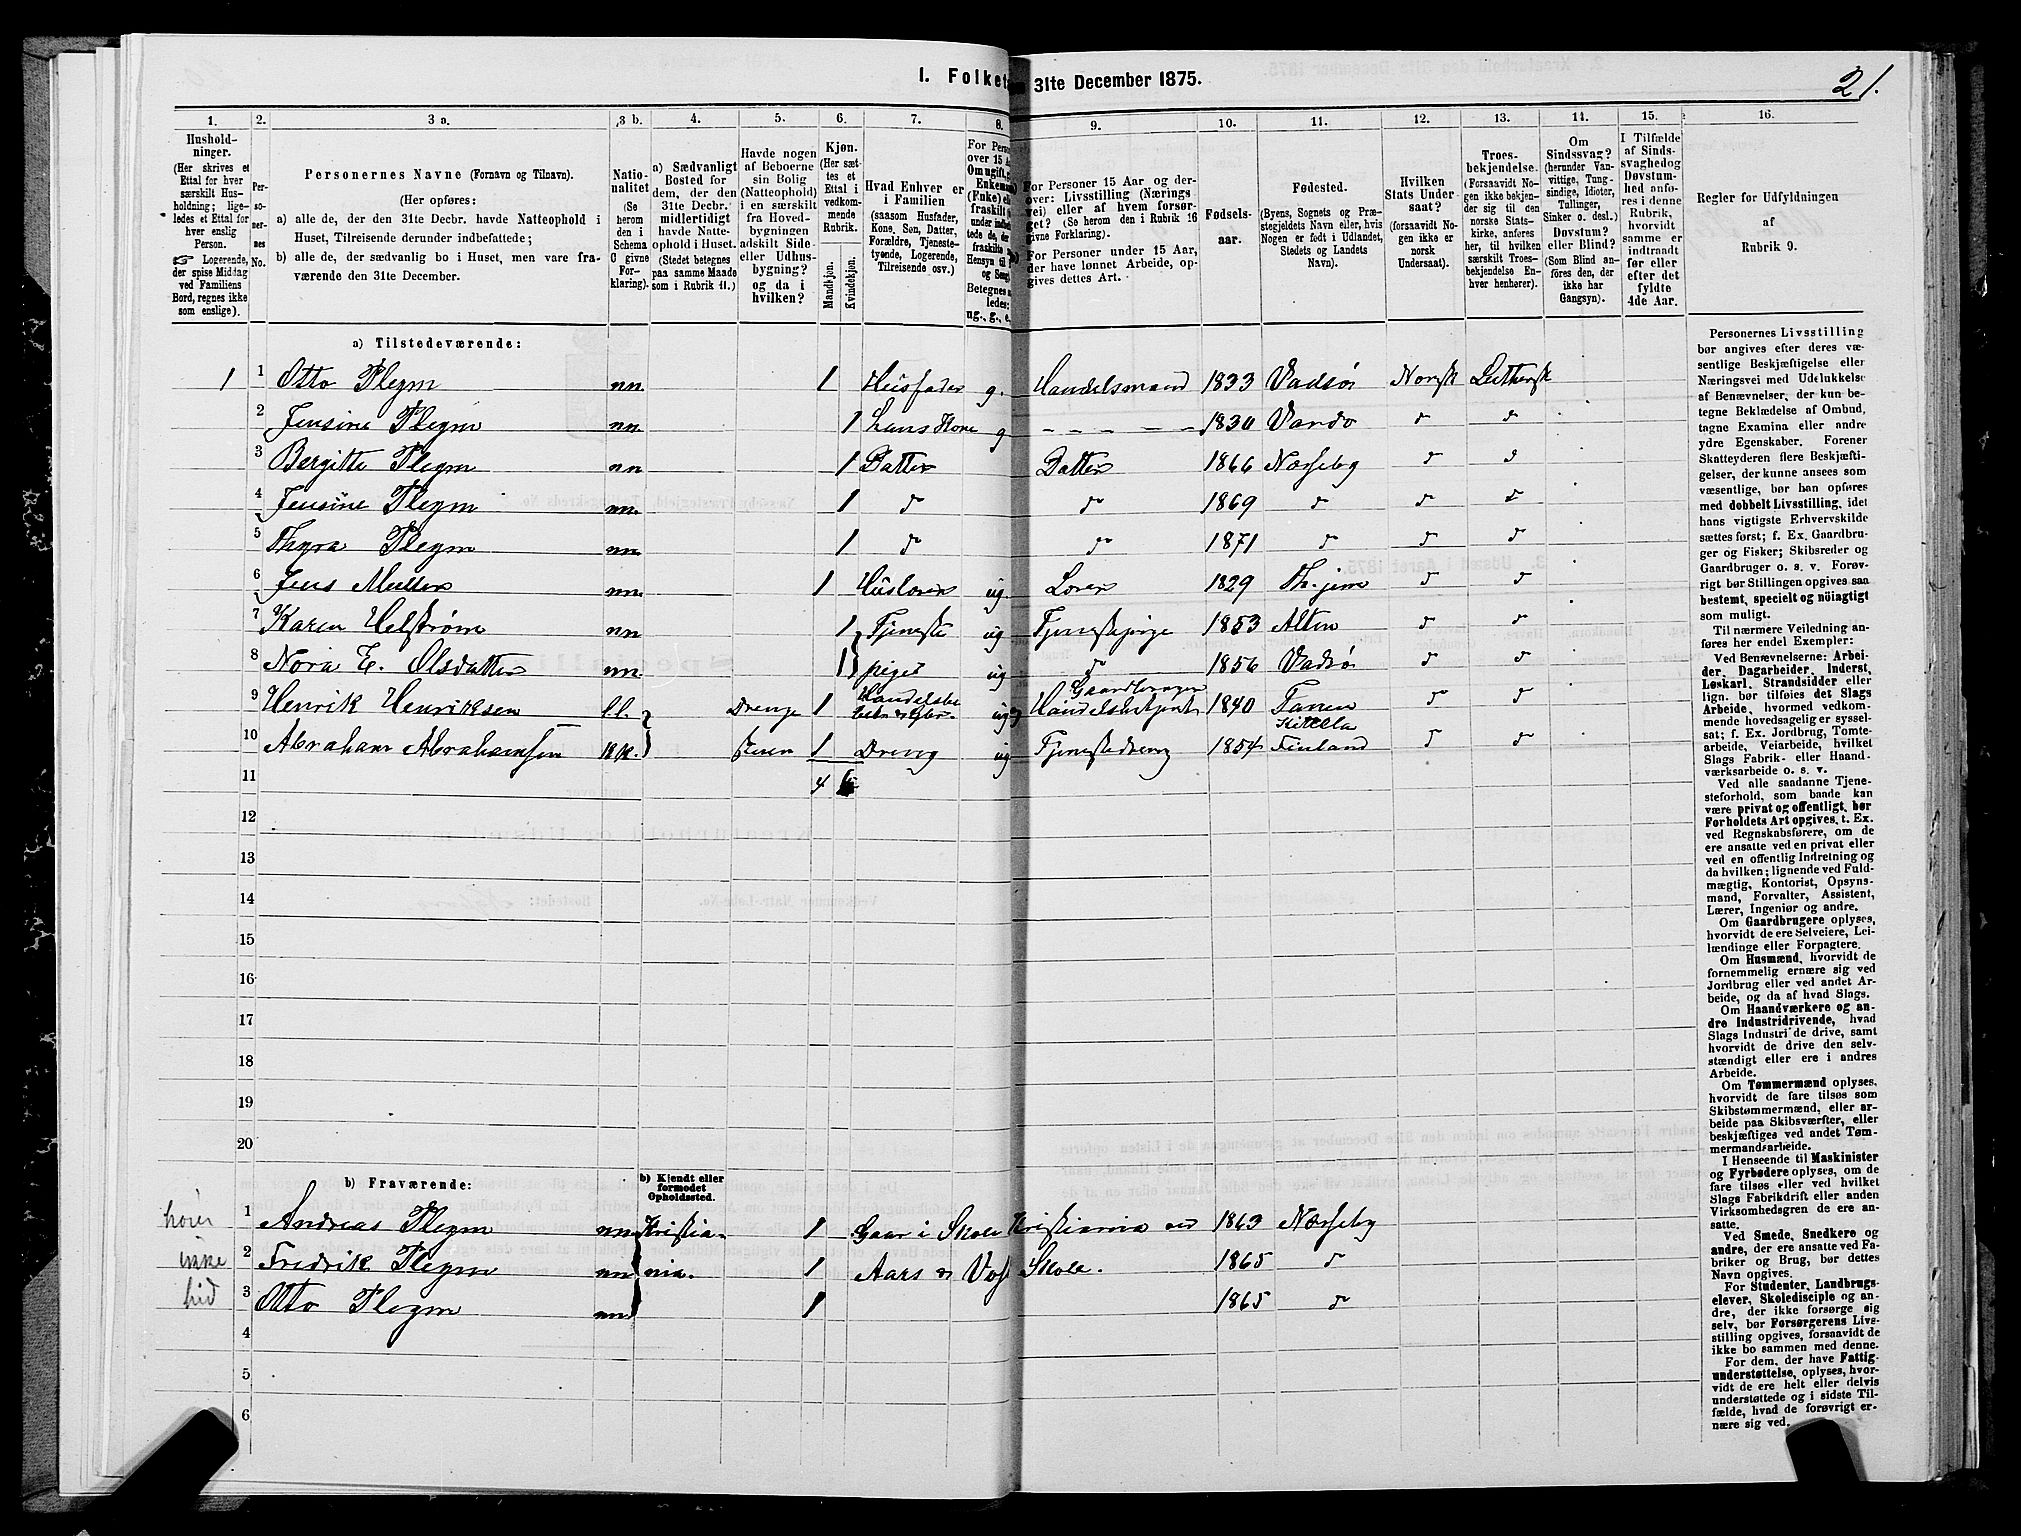 I. Folket 31te December 1875.
21.
1. 2. 3 a. 3 b. 4. 5. 6. 7. 8. 9. 10. 11. 12. 13. 14. 15. 16.
Hushold-
ninger.
(Her skrives et
Ettal for hver
særskilt Hus-
holdning; lige-
ledes et Ettal for
hver enslig
Person.
☞ Logerende,
der spise Middag
ved Familiens
Bord, regnes ikke
som enslige).
Per-
so-
ner-
nes
No.
Personernes Navne (Fornavn og Tilnavn).
(Her opføres:
a) alle de, der den 31te Decbr. havde Natteophold i
Huset, Tilreisende derunder indbefattede;
b) alle de, der sædvanlig bo i Huset, men vare fra-
værende den 31te December.
Natio-
nalitet
(Se
herom
den i
Schema
C givne
For-
klaring).
a) Sædvanligt
Bosted for
dem, der den
31te Decbr.
midlertidigt
havde Natte-
ophold i Huset.
(Stedet betegnes
paa samme Maade
som i Rubrik 11.)
Havde nogen
af Beboerne
sin Bolig
(Natteophold)
i en særskilt
fra Hoved-
bygningen
adskilt Side-
eller Udhus-
bygning?
og da i
hvilken?
Kjøn.
(Her sæt-
tes et
Ettal i
vedkom-
mende
Rubrik.
Mandkjøn.
Kvindekjøn.
Hvad Enhver er
i Familien
(saasom Husfader,
Kone, Søn, Datter,
Forældre, Tjeneste-
tyende, Logerende,
Tilreisende osv.)
For Person
over 15 Aar
Om ugift, g
Enkeman
(Enke) el
fraskilt
under indbe
tede de, der
Hensyn til
og Seng
Betegnes
ledes:
ug., g., e.
For Personer 15 Aar og der-
over: Livsstilling (Nærings-
vei) eller af hvem forsør-
get? (Se herom den i Rubrik 16
givne Forklaring).
For Personer under 15 Aar,
der have lønnet Arbeide, op-
gives dettes Art.
Fødsels-
aar.
Fødested.
(Byens, Sognets og Præ-
stegjeldets Navn eller, hvis
Nogen er født i Udlandet,
Stedets og Landets
Navn).
Hvilken
Stats Under-
saat?
(forsaavidt No-
gen ikke er
norsk
Undersaat).
Troes-
bekjendelse.
(Forsaavidt No-
gen ikke bekjen-
der sig til den
norske Stats-
kirke, anføres
her, til hvilken
særskilt Troes-
bekjendelse En-
hver henhører).
Om
Sindssvag?
(herunder Van-
vittige, Tung-
sindige, Idioter,
Tullinger,
Sinker o. desl.)
Døvstum?
eller Blind?
(Som Blind an-
føres den, der
ikke har
Gangsyn).
I Tilfælde
af Sinds-
svaghed og
Døvstum-
hed anfø-
res i denne
Rubrik,
hvorvidt
samme er
indtraadt
før eller
efter det
fyldte
4de Aar.
Regler for Udfyldningen
af
Rubrik 9.
a) Tilstedeværende:
1 1 Otto Plegm nn. 1 Husfader g. Handelsmand 1833 Vadsø Norsk Luthersk
2 Jensine Plegm nn. 1 hans Kone g – – – – – 1830 Vardo d d
3 Bergitte Plegm nn 1 Datter Datter 1866 Næsseby d d
4 Jensine Plegm nn. 1 d d 1869 d d d
5 Thyra Plegm nn. 1 d d 1871 d d d
6 Jens Muller nn. 1 Huslærer ug. Lærer 1829 d d
7 Karen Helstrøm nn 1 Tjeneste ug Tjenestepige 1853 Alten d d
8 Nora E. Olsdatter nn. 1 piger ug d 1856 Vadsø d d
9 Henrik Henriksen l.l. Drenge 1 ug 1840 Tanen d d
10 Abraham Abrahamsen kk. stuen 1 Dreng ug Tjenestedreng 1854 Kittella Finland d d
11 4
12
13
14
15
16
17
18
19
20
b) Fraværende:
b) Kjendt eller
formodet
Opholdssted.
hører 1 Andreas Plegm nn Kristia- 1 Gaar i Skole Kristiania ved 1863 Næsseby
ikke 2 Fredrik Plegm nn nia. 1 Aars & Vos Skole. 1865 d
hid 3 Otto Plegm nn 1 1865 d
4
5
6
Personernes Livsstilling
bør angives efter deres væ-
sentlige Beskjæftigelse eller
Næringsvei med Udelukkelse
af Benævnelser, der kun be-
tegne Beklædelse af Ombud,
tagne Examina eller andre
ydre Egenskaber. Forener
Skatteyderen flere Beskjæfti-
gelser, der kunne ansees som
væsentlige, bør han opføres
med dobbelt Livsstilling, idet
hans vigtigste Erhvervskilde
sættes først; f. Ex. Gaardbru-
ger og Fisker; Skibsreder og
Gaardbruger o. s. v. Forøv-
rigt bør Stillingen opgives saa
bestemt, specielt og nöiagtigt
som muligt.
Til nærmere Veiledning an-
føres her endel Exempler:
Ved Benævnelserne: Arbei-
der, Dagarbeider, Inderst,
Løskarl, Strandsidder eller
lign. bør tilføies det Slags
Arbeide, hvormed vedkom-
mende hovedsagelig er syssel-
sat; f. Ex. Jordbrug, Tomte-
arbeide, Veiarbeide, hvilket
Slags Fabrik- eller Haand-
værksarbeide o. s. v.
Ved alle saadanne Tjene-
steforhold, som baade kan
være privat og offentligt, bør
Forholdets Art opgives, t. Ex.
ved Regnskabsførere, om de
ere ansatte ved en privat eller
ved en offentlig Indretning og
da hvilken; lignende ved Fuld-
mægtig, Kontorist, Opsyns-
mand, Forvalter, Assistent,
Lærer, Ingeniør og andre.
Om Gaardbrugere oplyses,
hvorvidt de ere Selveiere, Lei-
lændinge eller Forpagtere.
Om Husmænd, hvorvidt de
fornemmelig ernære sig ved
Jordbrug eller ved andet Ar-
beide, og da af hvad Slags.
Om Haandværkere og an-
dre Industridrivende, hvad
Slags Industri de drive, samt
hvorvidt de drive den selv-
stændigt eller ere i andres
Arbeide.
Om Tømmermænd oplyses,
hvorvidt de fare tilsøs som
Skibstømmermænd, eller ar-
beide paa Skibsværfter, eller
beskjæftiges ved andet Tøm-
mermandsarbeide.
I Henseende til Maskinister
og Fyrbødere oplyses, om de
fare tilsøs eller ved hvilket
Slags Fabrikdrift eller anden
Virksomhedsgren de ere an-
satte.
Ved Smede, Snedkere og
andre, der ere ansatte ved Fa-
briker og Brug, bør dettes
Navn opgives.
For Studenter, Landbrugs-
elever, Skoledisciple og an-
dre, der ikke forsørge sig
selv, bør Forsørgerens Livs-
stilling opgives, forsaavidt de
ikke bo sammen med denne.
For dem, der have Fattig-
understøttelse, oplyses, hvor-
vidt de ere helt eller delvis
understøttede og i sidste Til-
fælde, hvad de forøvrigt er-
nære sig ved.